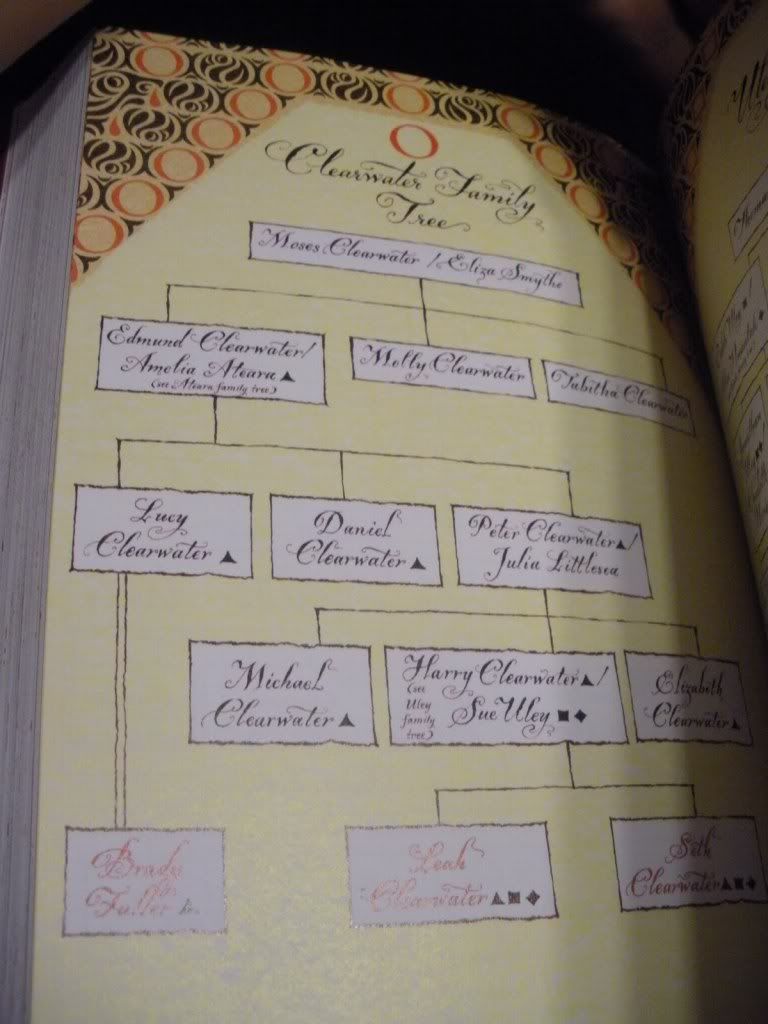 Clearwater Family
Tree
Moses Clearwater / Eliza Smythe
Edmund Clearwater/
Amelia Ateara ▲
(see Ateara family tree)
Molly Clearwater
Tabitha Clearwater
Lucy
Clearwater ▲
Daniel
Clearwater ▲
Peter Clearwater▲/
Julia Littlesea
Michael
Clearwater ▲
Harry Clearwater▲/
(see
Uley
family
tree)
Sue Uley ■ ◆
Elizabeth
Clearwater ▲
Brady
Fuller
Leah
Clearwater▲■◆
Seth
Clearwater▲■◆